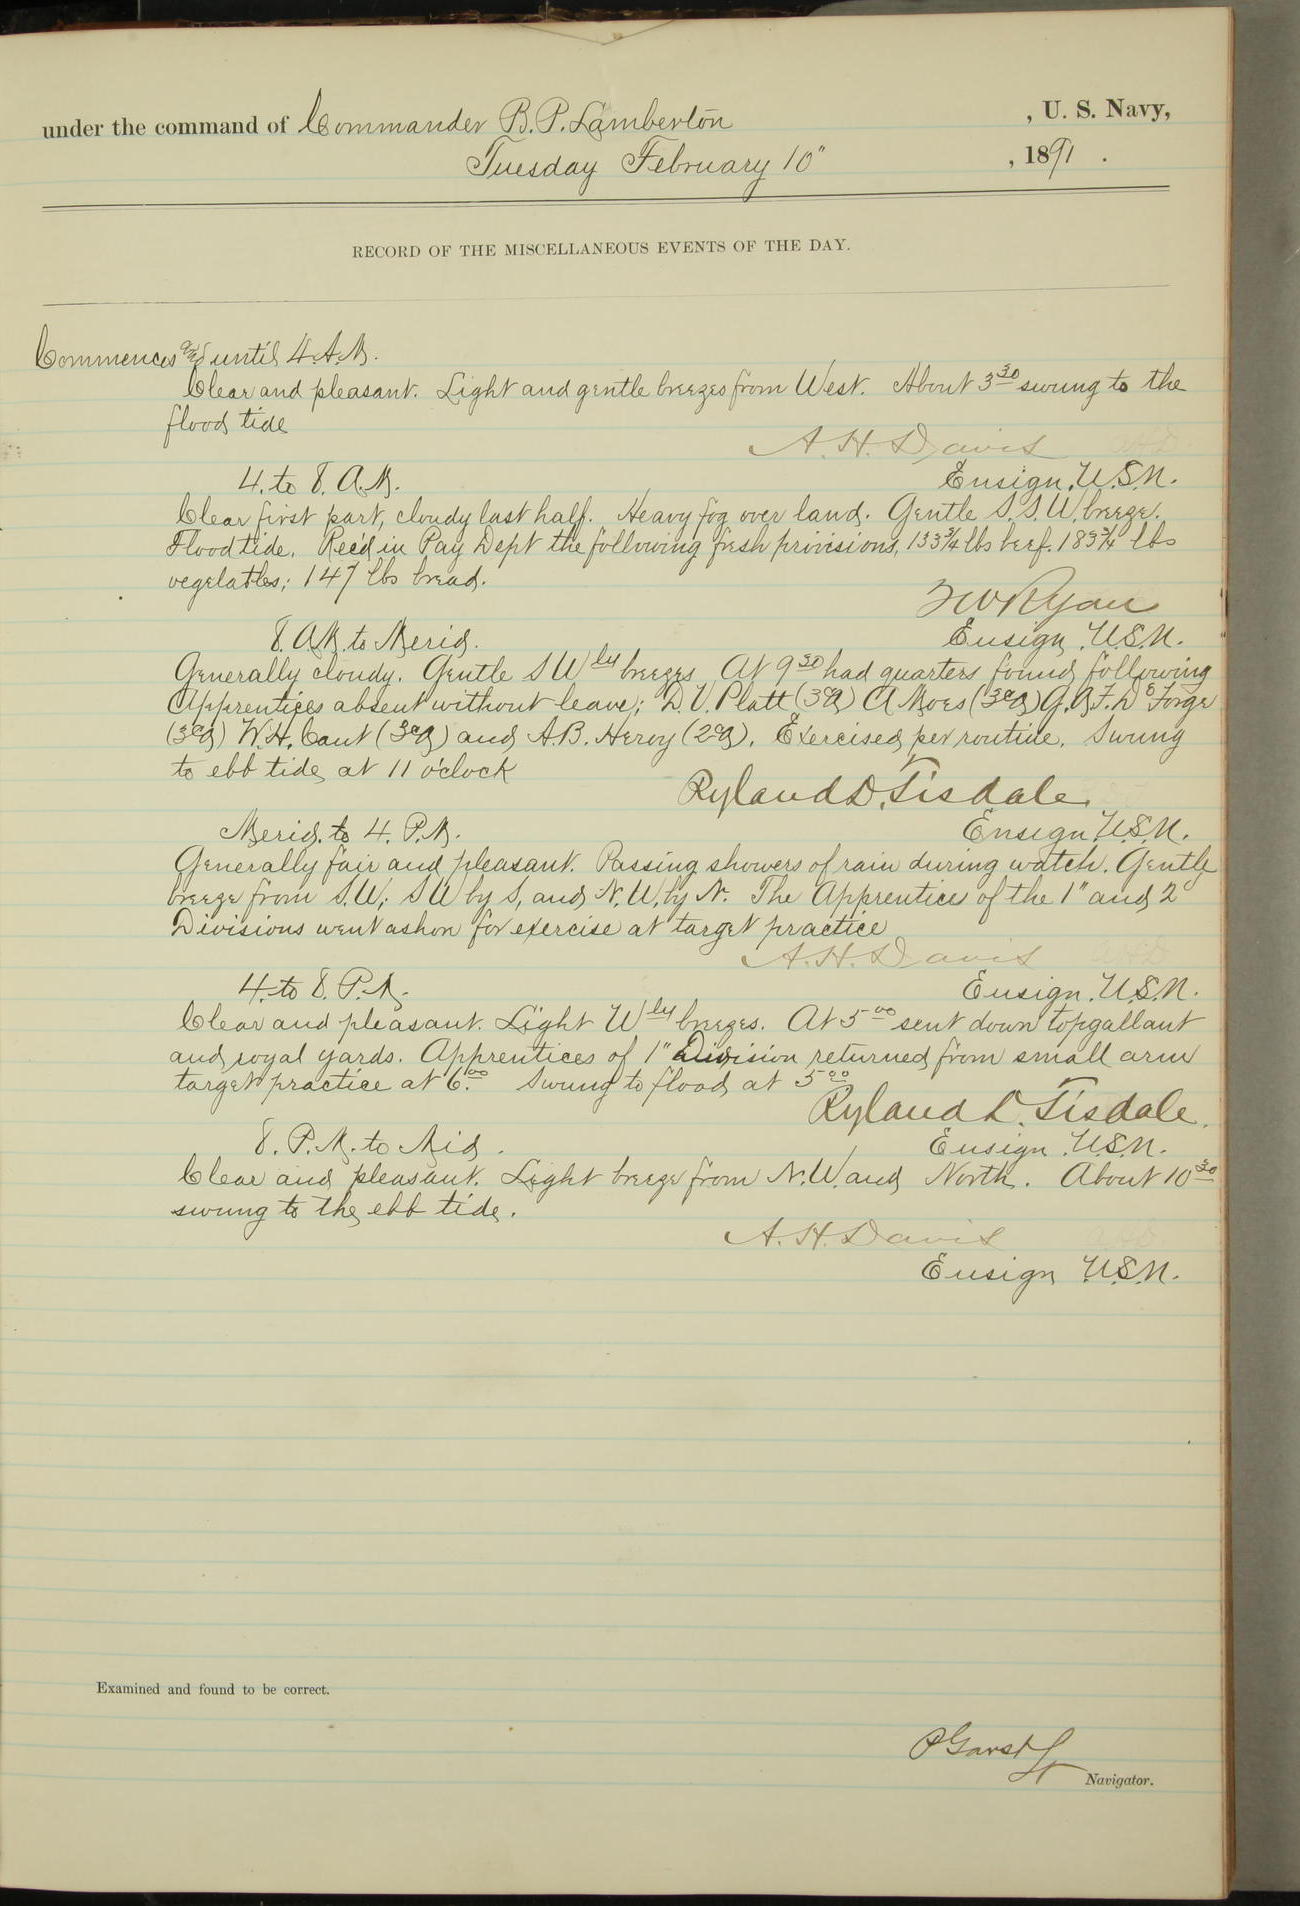 under the command of Commander B. P. Lamberton, U. S. Navy,
Tuesday February 10", 1891.
RECORD OF THE MISCELLANEOUS EVENTS OF THE DAY.
Commences and until 4 A.M.
Clear and pleasant. Light and gentle breezes from West. About 3 30 swung to the
flood tide
A. H. Davis
4. to 8. A.M.
Ensign, U.S.N.
Clear first part, cloudy last half. Heavy fog over land. Gentle S.S.W. breeze.
Flood tide. Rec'd in Pay Dept the following fresh provisions, 133 3/4 lbs beef. 183 3/4 lbs
vegelatbles; 147 lbs bread.
F W Ryan
8. AM. to Merid.
Ensign, U.S.N.
Generally cloudy. Gentle S W ly breezes At 9 30 had quarters found following
Apprentices absent without leave; D. V. Platt (3 a) A Moes (3 a) G. A. F. De Forge
(3 a) W. H. Cant (3 a) and A. B. Heroy (2 a). Exercised per routine. Swung
to ebb tide at 11 o'clock
Ryland D. Tisdale.
Merid. to 4. P.M.
Ensign U.S.N.
Generally fair and pleasant. Passing showers of rain during watch. Gentle
breeze from S.W; SW by S, and N.W. by N. The Apprentices of the 1" and 2
Divisions went ashore for exercise at target practice
A. H. Davis
4. to 8. P.M.
Ensign. U.S.N.
Clear and pleasant. Light W ly breezes. At 5 00 sent down topgallant
and royal yards. Apprentices of 1" Division returned from small arm
target practice at 6. 00 Swung to flood at 5 00
Ryland D. Tisdale.
8. P.M. to Mid.
Ensign U.S.N.
Clear and pleasant. Light breeze from N.W. and North. About 10 30
swung to the ebb tide.
A. H. Davis
Ensign U.S.N.
Examined and found to be correct.
P Garst
Navigator.